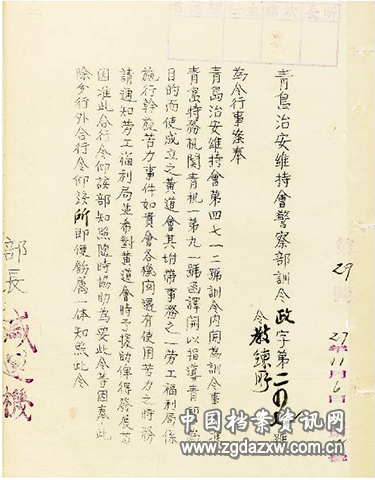 青島治安維持會警察部訓令政字第二〇號
令教練所
為令行事案奉
青島治安維持會第四七一二號訓令內開為訓令事准
青島特務機關青机一第九一號函譯開以指導青
目的而使成立之黃道會其附帶事務之一勞工福利局係
施行幹旋苦力事件如貴會各機關遇有使用苦力之時務
請通知勞工福利局並希對黃道會時予援助俾得發展等
因准此合行令仰該部知照隨時協助為要此令等因奉此
除分行外合行令仰該所即便飭屬一体知照此令
部長
29
27年11月6日
中国档案资讯网
www.zgdazxw.com.cn